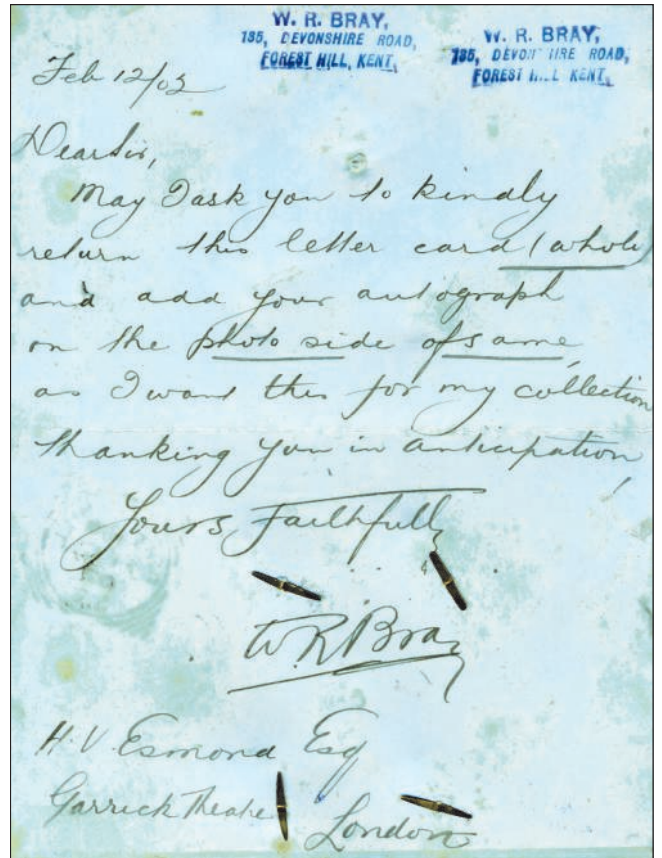 W. R. BRAY,
135, DEVONSHIRE ROAD,
FOREST HILL, KENT.
W. R. BRAY,
135, DEVON IRE ROAD,
FOREST H L, KENT.
Feb 12/02
Dear Sir,
May I ask you to kindly
return this letter card (whole)
and add your autograph
on the photo side of same,
as I want this for my collection
thanking you in anticipation,
Yours Faithfully
W R Bray
H. V. Esmond Esq
Garrick Theatre
London